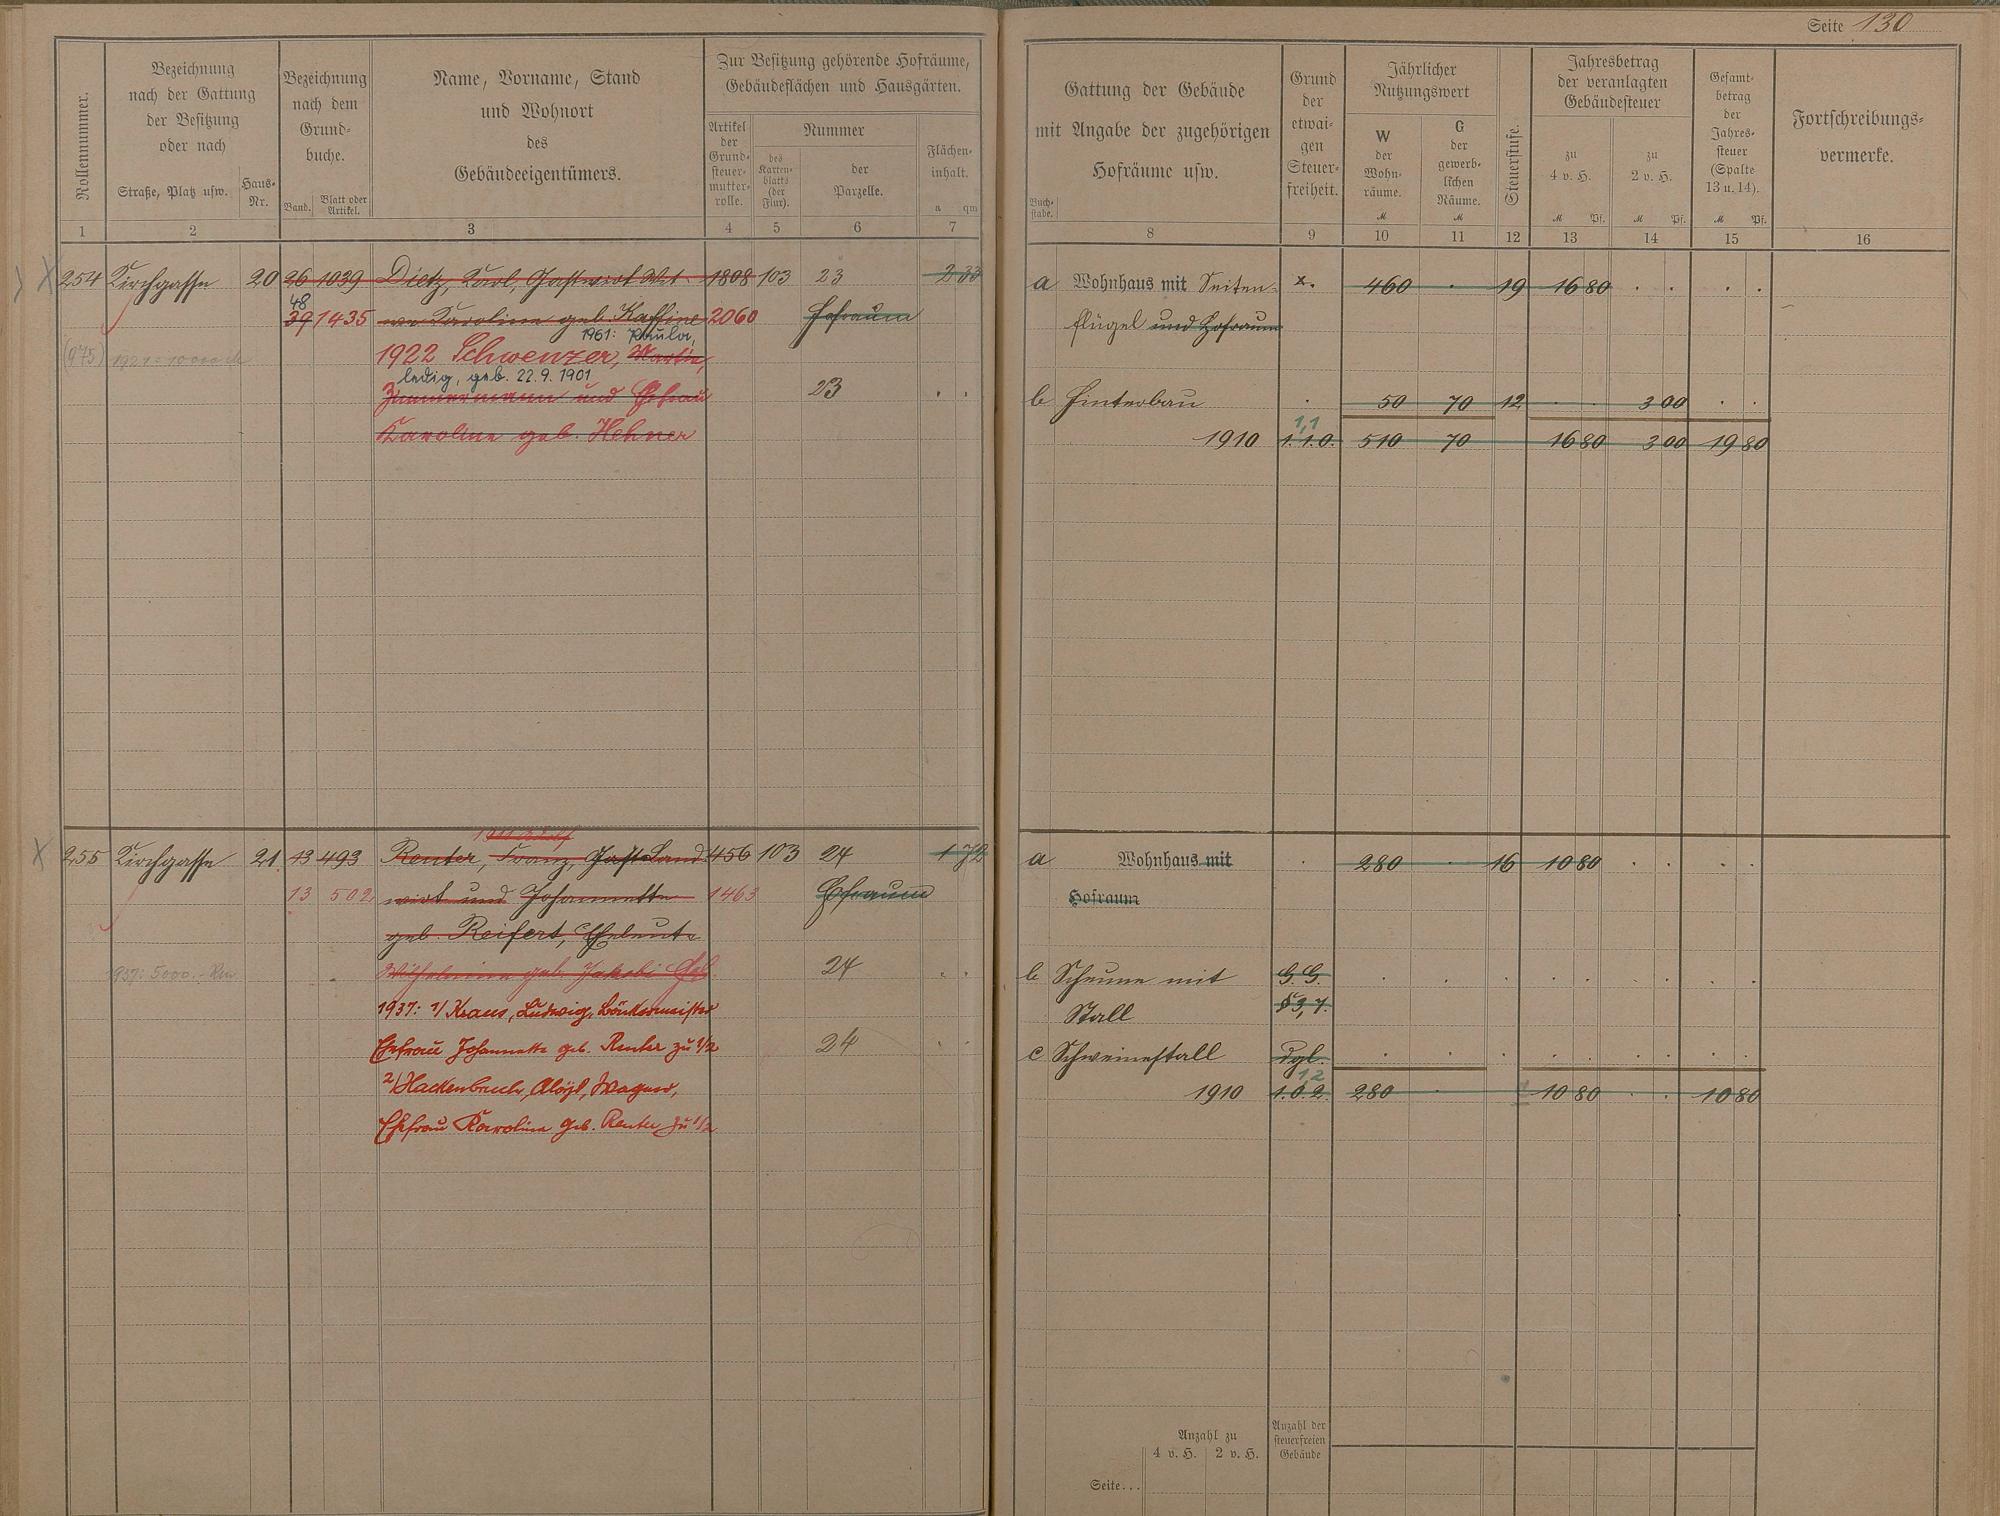 Seite 130
Rollennummer.
Bezeichnung
nach der Gattung
der Besitzung
oder nach
Straße, Platz usw.
Haus-
Nr.
Bezeichnung
nach dem
Grund-
buche.
Band.
Blatt oder
Artikel.
Name, Vorname, Stand
und Wohnort
des
Gebäudeeigentümers.
Zur Besitzung gehörende Hofräume,
Gebäudeflächen und Hausgärten.
Artikel
der
Grund-
steuer-
mutter-
rolle.
Nummer
des
Karten-
blatts
(der
Flur).
der
Parzelle.
Flächen-
inhalt.
a qm
1 2 3 4 5 6 7
254 Kirchgasse 20 26 1039 Dietz, Karl, Gastwirt Wit- 1808 103 23 2 33
48
39 1435 we Karoline geb. Kaffine 2060 Hofraum
1961: Paula,
(975) 1922 Schwenzer, Martin,
ledig, geb. 22.9.1901
Zimmermann und Ehefrau 23
Karoline geb. Hehner
255 Kirchgasse 21 13 493 Renter, Franz, Gast Land- 456 103 24 1 72
13 502 wirt und Johannette 1463 Hofraum
geb. Reifert, Eheleute
1937: 5000.- Wilhelmine geb. Jakobi 24
1937: 1/ Kraus, Ludwig,
Ehefrau Johannette geb. Renter zu 1/2 24
2/ Hackenbruch, Wagner,
Ehefrau Karoline geb. Renter zu 1/2
Gattung der Gebäude
mit Angabe der zugehörigen
Hofräume usw.
Buch-
stabe.
Grund
der
etwai-
gen
Steuer-
freiheit.
Jährlicher
Nutzungswert
W
der
Wohn-
räume.
M
G
der
gewerb-
lichen
Räume.
M
Steuerstufe.
Jahresbetrag
der veranlagten
Gebäudesteuer
zu
4 v. H.
M Pf.
zu
2 v. H.
M Pf.
Gesamt-
betrag
der
Jahres-
steuer
(Spalte
13 u. 14).
M Pf.
Fortschreibungs-
vermerke.
8 9 10 11 12 13 14 15 16
a Wohnhaus mit Seiten- x. 460 . 19 16 80 . . . .
flügel und Hofraum
b Hinterbau . 50 70 12 . . 3 00 . .
1,1
1910 1.1.0. 510 70 16 80 3 00 19 80
a Wohnhaus mit . 280 . 16 10 80 . . . .
Hofraum
b Scheune mit G.G.
Stall § 3,7.
c Schweinestall dgl.
1,2
1910 1.0.2. 280 . 10 80 . . 10 80
Anzahl zu
4 v. H. 2 v. H.
Anzahl der
steuerfreien
Gebäude
Seite...